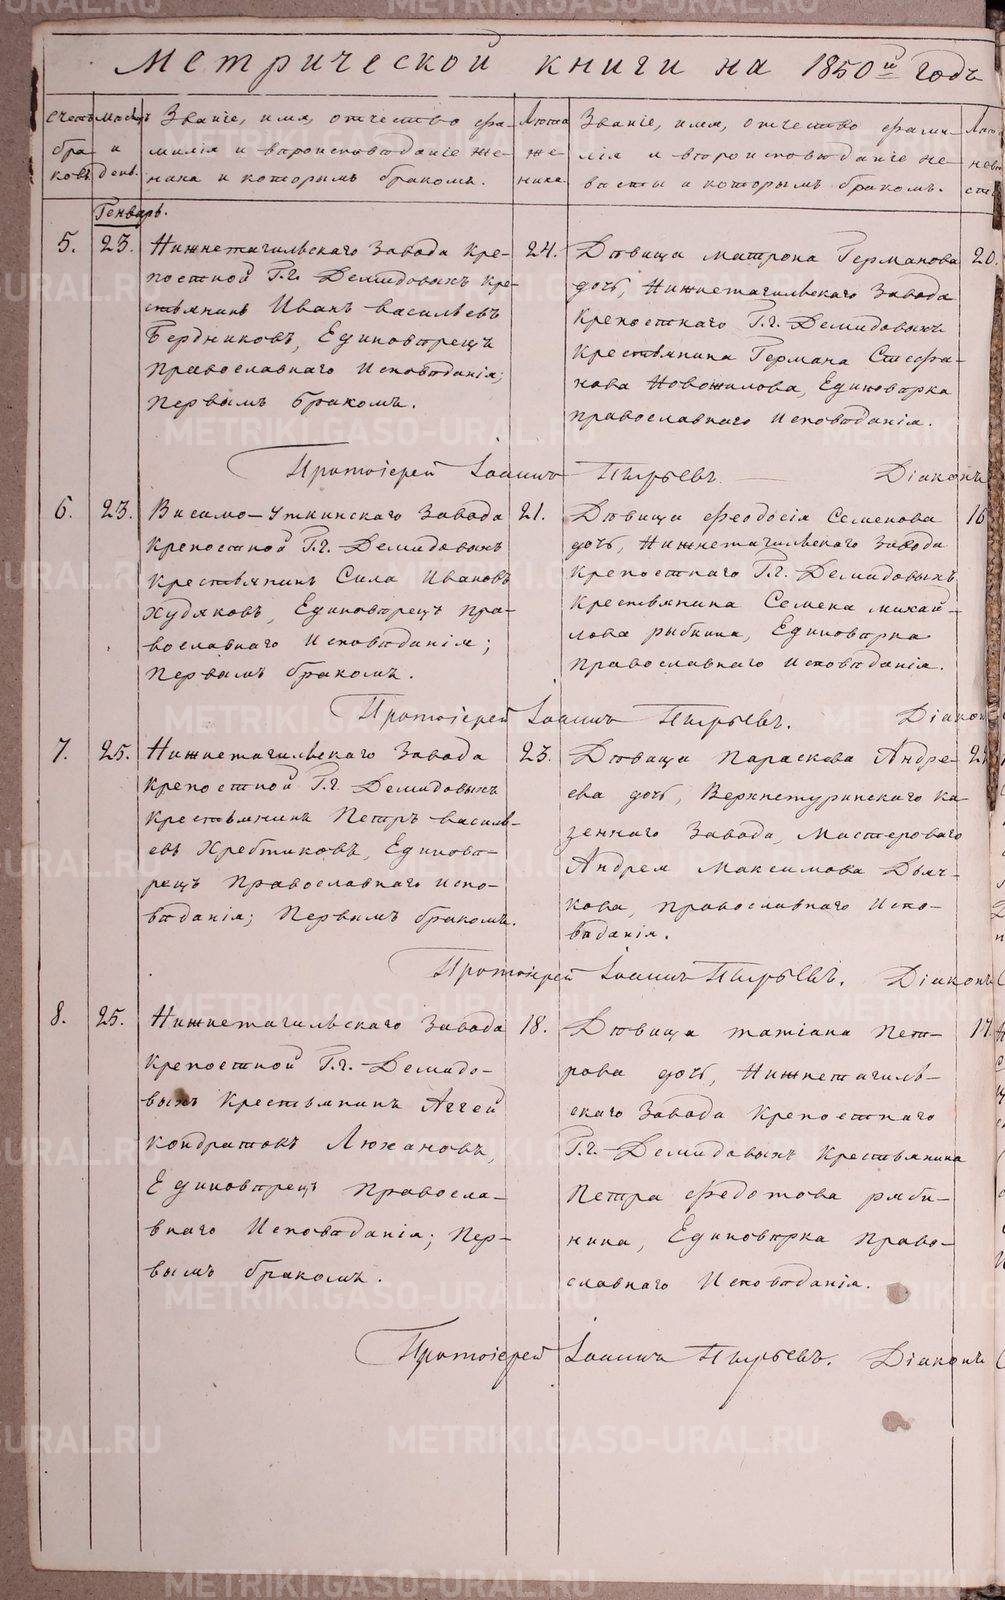 Метрической книги на 1850й годъ
Счетъ браковъ
Месяцъ и день.
Званіе, имя, отчество фа-
милія и вѣроисповѣданіе же-
ниха и которымъ бракомъ.
Лѣта же-
ниха.
Званіе, имя, отчество фами-
лія и вѣроисповѣданіе не-
весты и которымъ бракомъ.
Генварь.
5. 23.
Нижнетагильскаго Завода кре-
постной Г.г. Демидовыхъ кре-
стьянинъ Иванъ Васильевъ
Бердниковъ, Единовѣрецъ
Православнаго Исповѣданія;
Первымъ бракомъ.
24.
Дѣвица Матрона Германова
дочь, Нижнетагильскаго Завода
Крепостнаго Г.г. Демидовыхъ
Крестьянина Германа Стефа-
нова Новожилова, Единовѣрка
Православнаго Исповѣданія.
20.
Протоіерей Іоаннъ Пырьевъ. Діаконъ
6. 23.
Висимо-Уткинскаго Завода
Крепостной Г.г. Демидовыхъ
Крестьянинъ Сила Ивановъ
Худяковъ, Единовѣрецъ Пра-
вославнаго Исповѣданія;
Первымъ бракомъ.
21.
Дѣвица Феодосія Семенова
дочь, Нижнетагильскаго Завода
Крепостнаго Г.г. Демидовыхъ
Крестьянина Семена Михай-
лова рыбина, Единовѣрка
Православнаго Исповѣданія.
16
Протоіерей Іоаннъ Пырьевъ. Діаконъ
7. 25.
Нижнетагильскаго Завода
Крепостной Г.г. Демидовыхъ
Крестьянинъ Петръ Василь-
евъ Хребтиковъ, Единовѣ-
рецъ Православнаго Испо-
вѣданія; Первымъ бракомъ.
23.
Дѣвица Параскева Андре-
ева дочь, Верхнетуринскаго Ка-
зеннаго Завода, Мастероваго
Андрея Максимова Дьяч-
кова, Православнаго Испо-
вѣданія.
Протоіерей Іоаннъ Пырьевъ. Діаконъ
8. 25.
Нижнетагильскаго Завода
Крепостной Г.г. Демидо-
выхъ Крестьянинъ Аггей
Кондратовъ Люхановъ,
Единовѣрецъ Правосла-
внаго Исповѣданія; Пер-
вымъ бракомъ.
18.
Дѣвица Татіана Пет-
рова дочь, Нижнетагиль-
скаго Завода Крепостнаго
Г.г. Демидовыхъ Крестьянина
Петра Федотова ряби-
нина, Единовѣрка Право-
славнаго Исповѣданія.
17.
Протоіерей Іоаннъ Пырьевъ. Діаконъ
METRIKI.GASO-URAL.RU